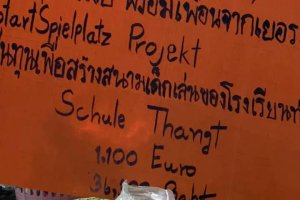 พร้อมเพื่อนจากเยอร
StartSpielplatz Projekt
ทุนเพื่อสร้างสนามเด็กเล่นของโรงเรียน
Schule Thangt
1.100 Euro